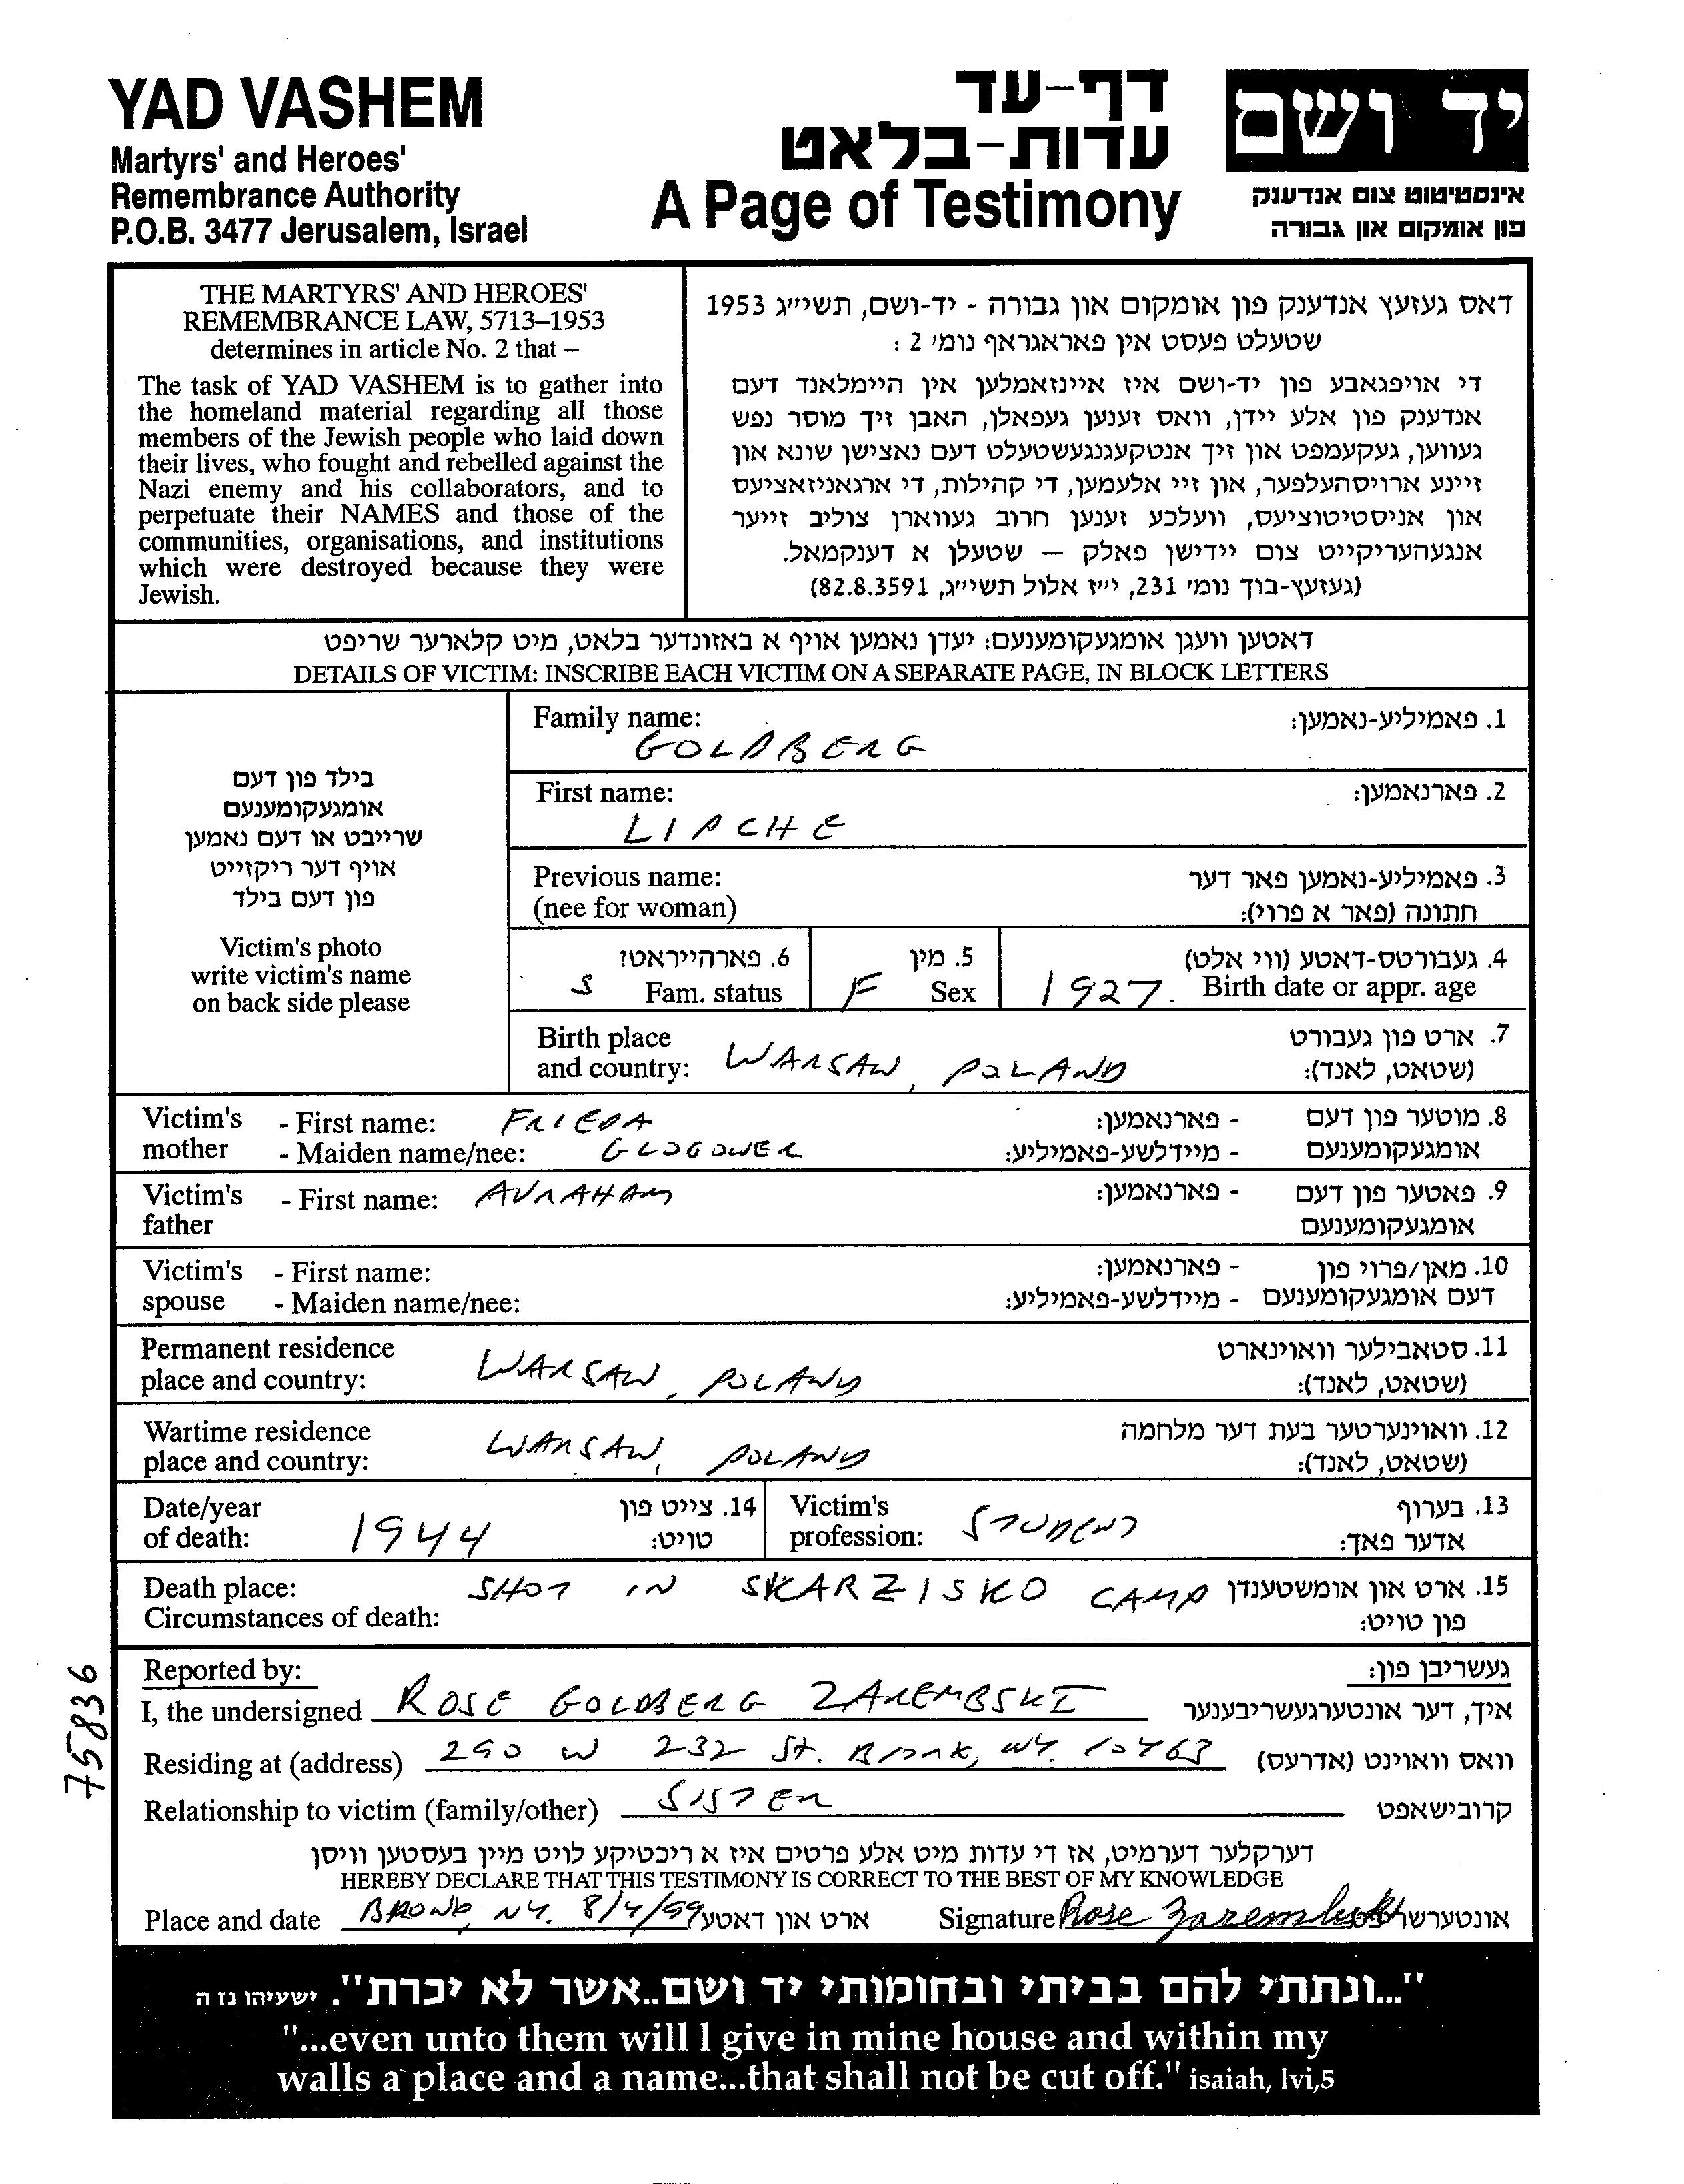 YAD VASHEM
Martyrs' and Heroes'
Remembrance Authority
P.O.B. 3477 Jerusalem, Israel
דף-עד
עדות-בלאט
A Page of Testimony
יד ושם
אינסטיטוט צום אנדענק
פון אומקום און גבורה
THE MARTYRS' AND HEROES'
REMEMBRANCE LAW, 5713–1953
determines in article No. 2 that –
The task of YAD VASHEM is to gather into
the homeland material regarding all those
members of the Jewish people who laid down
their lives, who fought and rebelled against the
Nazi enemy and his collaborators, and to
perpetuate their NAMES and those of the
communities, organisations, and institutions
which were destroyed because they were
Jewish.
דאס געזעץ אנדענק פון אומקום און גבורה - יד-ושם, תשי״ג 1953
שטעלט פעסט אין פאראגראף נומ׳ 2 :
די אויפגאבע פון יד-ושם איז איינזאמלען אין היימלאנד דעם
אנדענק פון אלע יידן, וואס זענען געפאלן, האבן זיך מוסר נפש
געווען, געקעמפט און זיך אנטקעגנגעשטעלט דעם נאצישן שונא און
זיינע ארויסהעלפער, און זיי אלעמען, די קהילות, די ארגאניזאציעס
און אניסטיטוציעס, וועלכע זענען חרוב געווארן צוליב זייער
אנגעהעריקייט צום יידישן פאלק – שטעלן א דענקמאל.
(געזעץ-בוך נומ׳ 231, י״ז אלול תשי״ג, 82.8.3591)
דאטען וועגן אומגעקומענעם: יעדן נאמען אויף א באזונדער בלאט, מיט קלארער שריפט
DETAILS OF VICTIM: INSCRIBE EACH VICTIM ON A SEPARATE PAGE, IN BLOCK LETTERS
בילד פון דעם
אומגעקומענעם
שרייבט או דעם נאמען
אויף דער ריקזייט
פון דעם בילד
Victim's photo
write victim's name
on back side please
Family name: 1. פאמיליע-נאמען:
GOLDBERG
First name: 2. פארנאמען:
LIPCHE
Previous name: 3. פאמיליע-נאמען פאר דער
(nee for woman) חתונה (פאר א פרוי):
6. פארהייראט? 5. מין 4. געבורטס-דאטע (ווי אלט)
S Fam. status F Sex 1927. Birth date or appr. age
Birth place 7. ארט פון געבורט
and country: WARSAW, POLAND (שטאט, לאנד):
Victim's - First name: FRIEDA - פארנאמען: 8. מוטער פון דעם
mother - Maiden name/nee: GLOGOWER - מיידלשע-פאמיליע: אומגעקומענעם
Victim's - First name: AVRAHAM - פארנאמען: 9. פאטער פון דעם
father אומגעקומענעם
Victim's - First name: - פארנאמען: 10. מאן/פרוי פון
spouse - Maiden name/nee: - מיידלשע-פאמיליע: דעם אומגעקומענעם
Permanent residence 11. סטאבילער וואוינארט
place and country: WARSAW, POLAND (שטאט, לאנד):
Wartime residence 12. וואוינערטער בעת דער מלחמה
place and country: WARSAW, POLAND (שטאט, לאנד):
Date/year 14. צייט פון Victim's 13. בערוף
of death: 1944 טויט: profession: STUDENT אדער פאך:
Death place: SHOT IN SKARZISKO CAMP 15. ארט און אומשטענדן
Circumstances of death: פון טויט:
75836
Reported by: געשריבן פון:
I, the undersigned ROSE GOLDBERG ZAREMBSKI איך, דער אונטערגעשריבענער
Residing at (address) 290 W 232 St. Bronx, NY. 10463 וואס וואוינט (אדרעס)
Relationship to victim (family/other) SISTER קרובישאפט
דערקלער דערמיט, אז די עדות מיט אלע פרטים איז א ריכטיקע לויט מיין בעסטען וויסן
HEREBY DECLARE THAT THIS TESTIMONY IS CORRECT TO THE BEST OF MY KNOWLEDGE
Place and date BRONX, NY. 8/4/99 ארט און דאטע Signature Rose Zarembski
"...ונתתי להם בביתי ובחומותי יד ושם..אשר לא יכרת". ישעיהו נז ה
"...even unto them will I give in mine house and within my
walls a place and a name...that shall not be cut off." isaiah, lvi,5